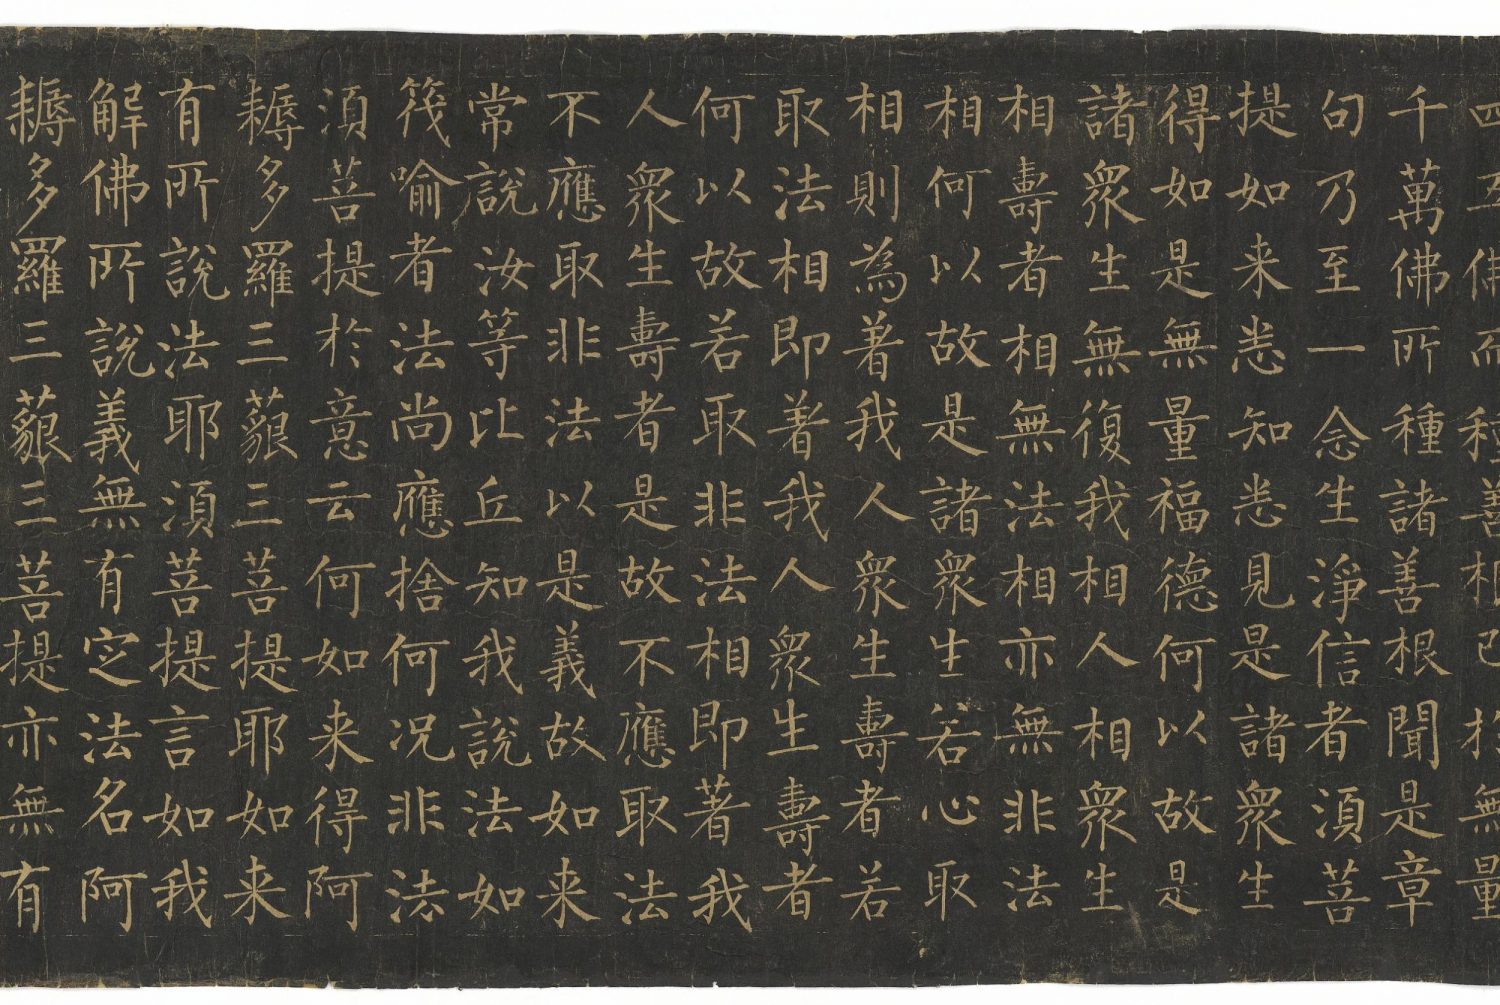 四五佛而種善根已於無量
千萬佛所種諸善根聞是章
句乃至一念生淨信者湏菩
提如来悉知悉見是諸衆生
得如是無量福德何以故是
諸衆生無復我相人相衆生
相壽者相無法相亦無非法
相何以故是諸衆生若心取
相則為著我人衆生壽者若
取法相即著我人衆生壽者
何以故若取非法相即著我
人衆生壽者是故不應取法
不應取非法以是義故如来
常說汝等比丘知我說法如
筏喻者法尚應捨何况非法
湏菩提於意云何如来得阿
耨多羅三藐三菩提耶如来
有所說法耶湏菩提言如我
解佛所說義無有定法名阿
耨多羅三藐三菩提亦無有